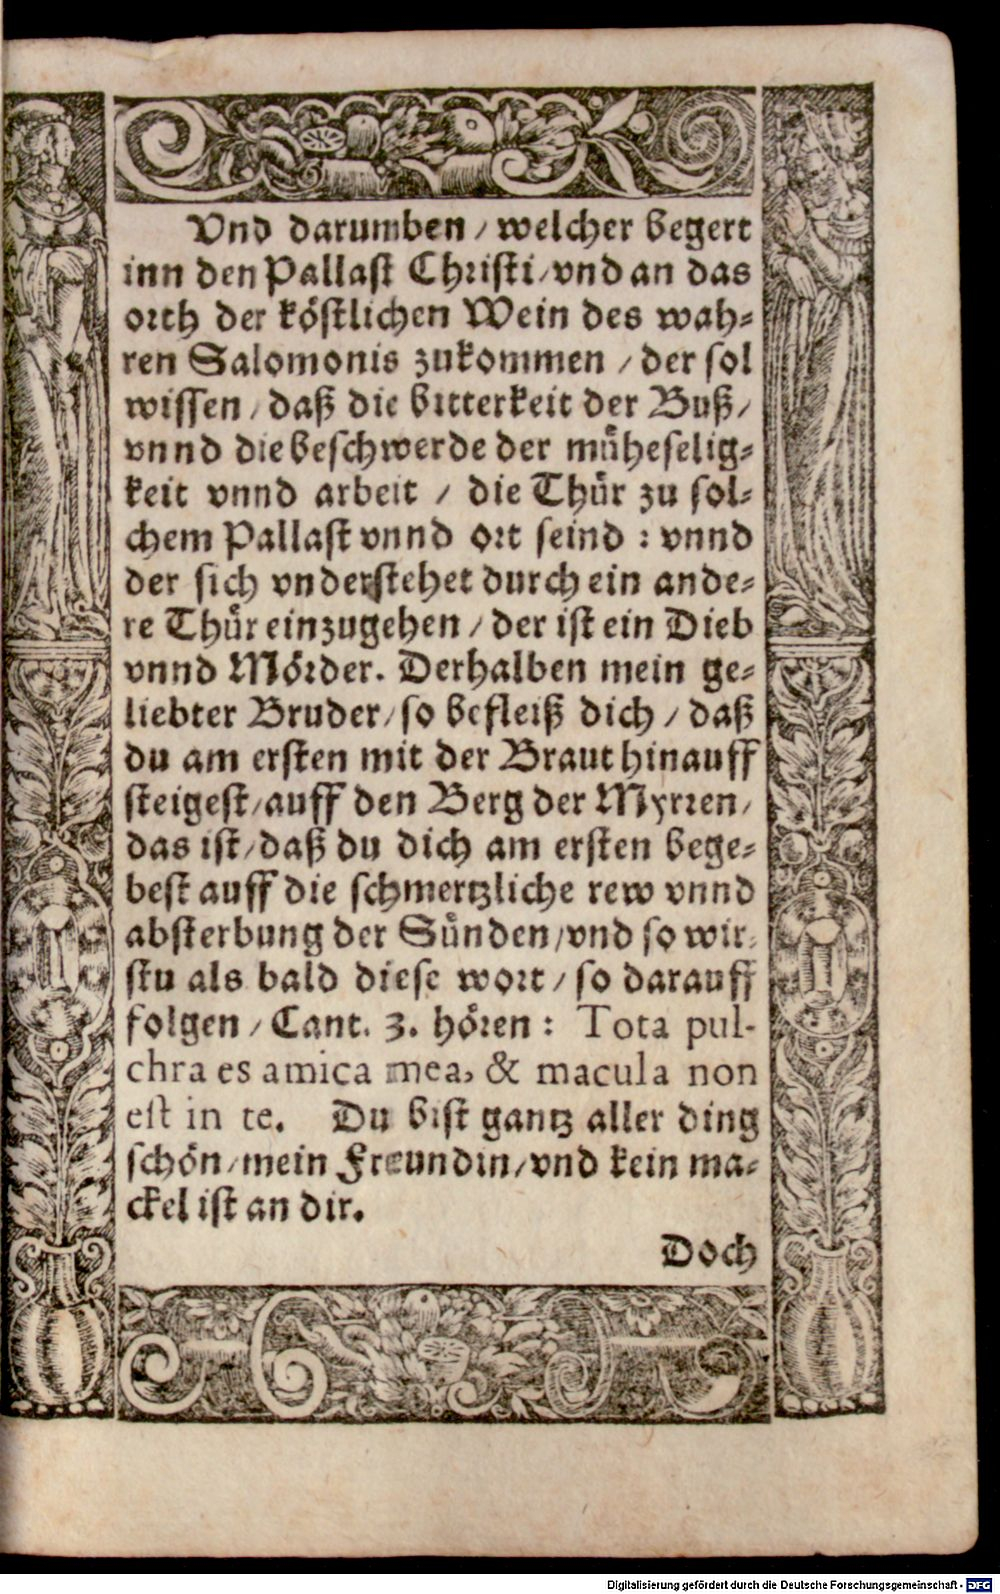 Vnd darumben / welcher begert
inn den Pallast Christi / vnd an das
orth der köstlichen Wein des wah-
ren Salomonis zukommen / der sol
wissen / daß die bitterkeit der Buß /
vnnd die beschwerde der müheselig-
keit vnnd arbeit / die Thür zu sol-
chem Pallast vnnd ort seind : vnnd
der sich vnderstehet durch ein ande-
re Thür einzugehen / der ist ein Dieb
vnnd Mörder. Derhalben mein ge-
liebter Bruder / so befleiß dich / daß
du am ersten mit der Braut hinauff
steigest / auff den Berg der Myrren /
das ist / daß du dich am ersten bege-
best auff die schmertzliche rew vnnd
absterbung der Sünden / vnd so wir-
stu als bald diese wort / so darauff
folgen / Cant. 3. hören : Tota pul-
chra es amica mea, & macula non
est in te. Du bist gantz aller ding
schön / mein Freundin / vnd kein ma-
ckel ist an dir.
Doch
Digitalisierung gefördert durch die Deutsche Forschungsgemeinschaft - DFG